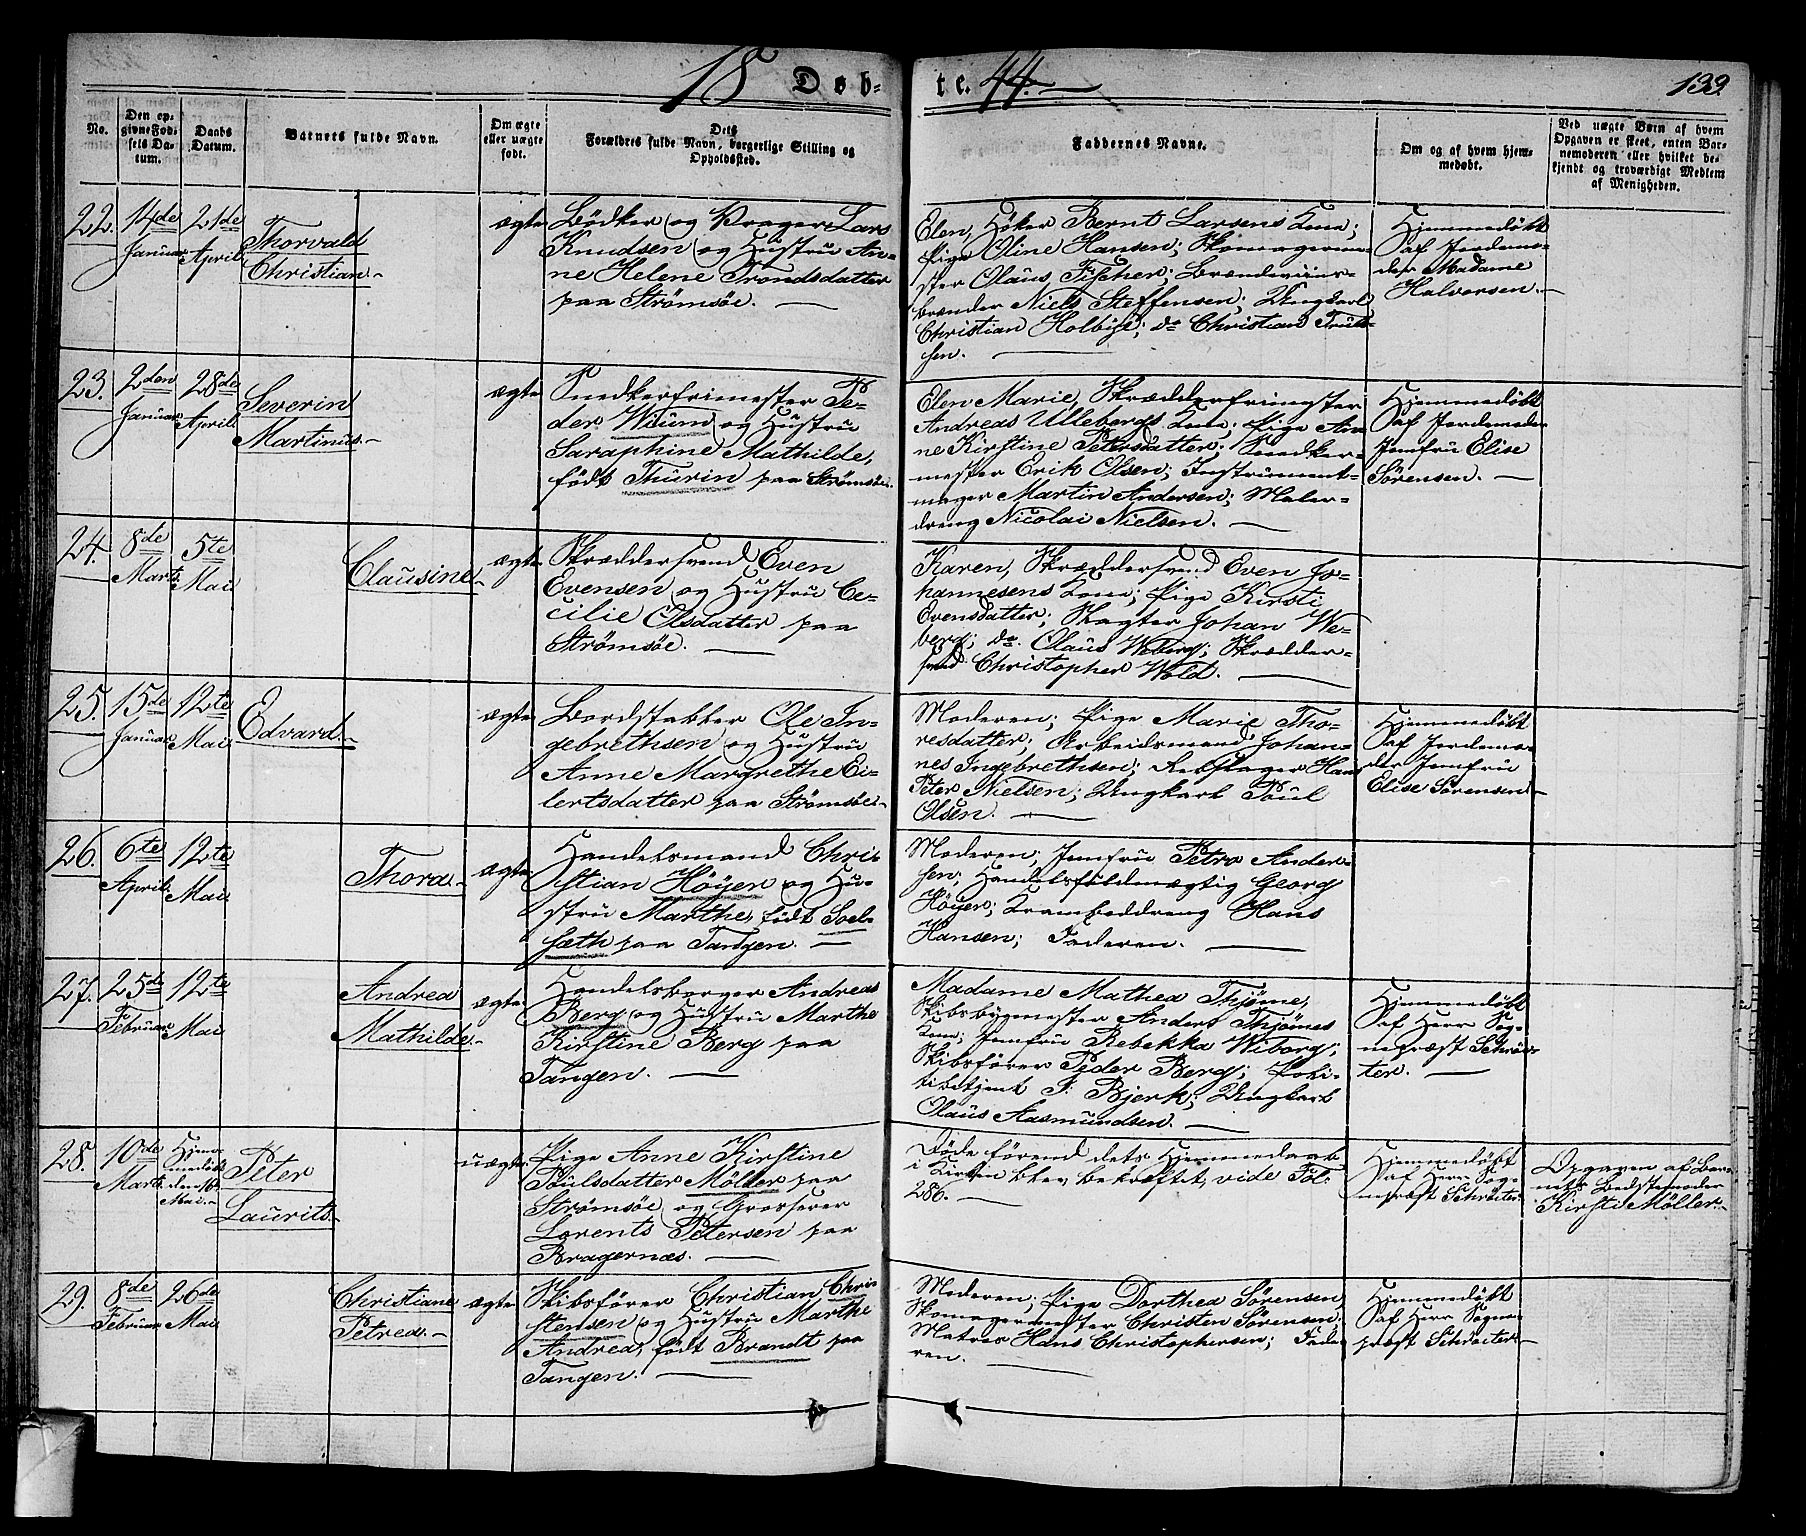 18 Døb-
te. 44.
133.
No.
Den op-
givne Fød-
sels Da-
tum.
Daabs
Datum.
Barnets fulde Navn.
Om ægte
eller uægte
født.
Dets
Forældres fulde Navn, borgerlige Stilling og
Opholdssted.
Faddernes Navne.
Om og af hvem hjem-
medøbt.
Ved uægte Børn af hvem
Opgaven er skeet, enten Bar-
nemoderen eller hvilket be-
kjendt og troværdigt Medlem
af Menigheden.
22.
14de
Januar
21de
April
Thorvald
Christian.
ægte
Bødker og Vrager Lars
Knudsen og Hustru An-
ne Helene Trondsdatter
paa Strømsøe.
Elen, Høker Bernt Larsens Kone;
Pige Oline Hansen; Skomagerme-
ster Olaus Fischer; Brændeviins-
brænder Niels Steffensen; Ungkarl
Christian Holbye; do Christian Truls-
sen.
Hjemmedøbt
af Jordemo-
der Madame
Halvorsen.
23.
2den
Januar
28de
April
Severin
Martinus.
ægte
Snedkerfrimester Pe-
der Wium og Hustru
Saraphine Mathilde,
født Thurin paa Strømsøe.
Elen Marie, Skrædderfrimester
Andreas Ullebergs Kone; Pige An-
ne Kirstine Petersdatter; Snedker-
mester Erik Olsen; Instrument-
mager Martin Andersen; Maler-
dreng Nicolai Nielsen.
Hjemmedøbt
af Jordemoder
Jomfru Elise
Sørensen.
24.
8de
Marts
5te
Mai
Clausine
ægte
Skræddersvend Even
Evensen og Hustru Ce-
cilie Olsdatter paa
Strømsøe.
Karen, Skræddersvend Even Jo-
hannesens Kone; Pige Kirsti
Evensdatter; Slagter Johan We-
berg; do. Olaus Weberg; Skrædder-
svend Christopher Wold.
25.
15de
Januar
12te
Mai
Edvard.
ægte
Bordstabler Ole In-
gebrethsen og Hustru
Anne Margrethe Ei-
lertsdatter paa Strømsøe.
Moderen; Pige Marie Tho-
resdatter; Arbeidsmand Johan-
nes Ingebrethsen; Rebslager Hans
Peter Nielsen; Ungkarl Poul
Olsen.
Hjemmedøbt
af Jordemo-
der Jomfru
Elise Sørensen.
26.
6te
April
12te
Mai
Thora.
ægte
Handelsmand Chri-
stian Høyer og Hu-
stru Marthe, født Soel-
sæth paa Tangen.
Moderen; Jomfru Petra Ander-
sen; Handelsfuldmægtig Georg
Høyer; Kramboddreng Hans
Hansen; Faderen.
27.
25de
Februar
12te
Mai
Andrea
Mathilde.
ægte
Handelsborger Andreas
Berg og Hustru Marthe
Kirstine Berg paa
Tangen.
Madame Mathea Thjøme,
Skibsbygmester Anders Thjømes
Kone; Jomfru Rebekka Wiborg;
Skibsfører Peder Berg; Poli-
tibetjent F. Bjerk; Ungkarl
Olaus Aasmundsen.
Hjemmedøbt
af Herr Sog-
nepræst Schrøi-
ter.
28.
10de
Marts
Hjem-
medøbt
den 16
Mai.
Peter
Laurits.
uægte
Pige Anne Kirstine
Poulsdatter Möller paa
Strømsøe og Grosserer
Lorents Petersen paa
Bragernæs.
Døde førend dets Hjemmedaab
i Kirken blev bekræftet, vide Fol.
286.
Hjemmedøbt
af Herr Sog-
nepræst Schrøiter.
Opgaven af Bar-
nets Bedstemoder
Kirsti Möller.
29.
8de
Februar
26de
Mai
Christiane
Petrea.
ægte
Skibsfører Christian Chri-
stensen og Hustru Marthe
Andrea, født Brandt paa
Tangen.
Moderen; Pige Dorthea Sørensen;
Skomagermester Christen Sørensen;
Matros Hans Christophersen; Fade-
ren.
Hjemmedøbt
af Herr Sogne-
præst Schrøiter.